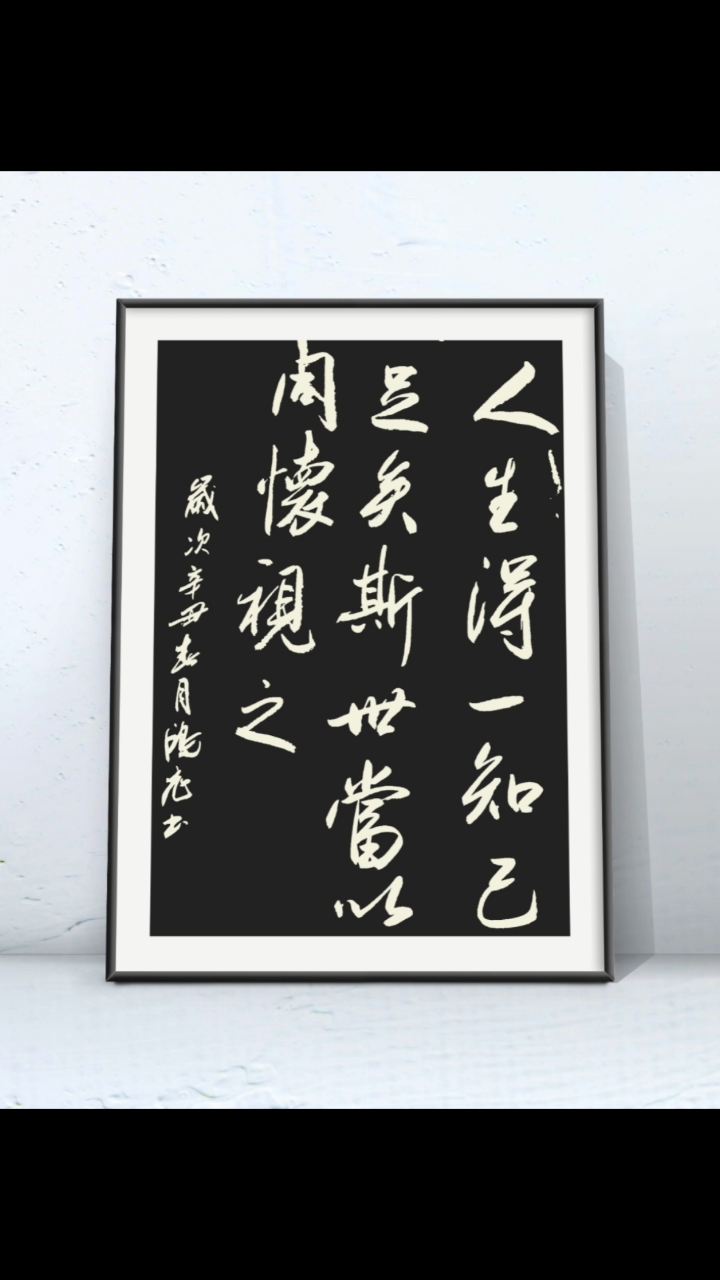 人生得一知己
足矣斯世當以
同懷視之
歲次辛丑春月鴻 書